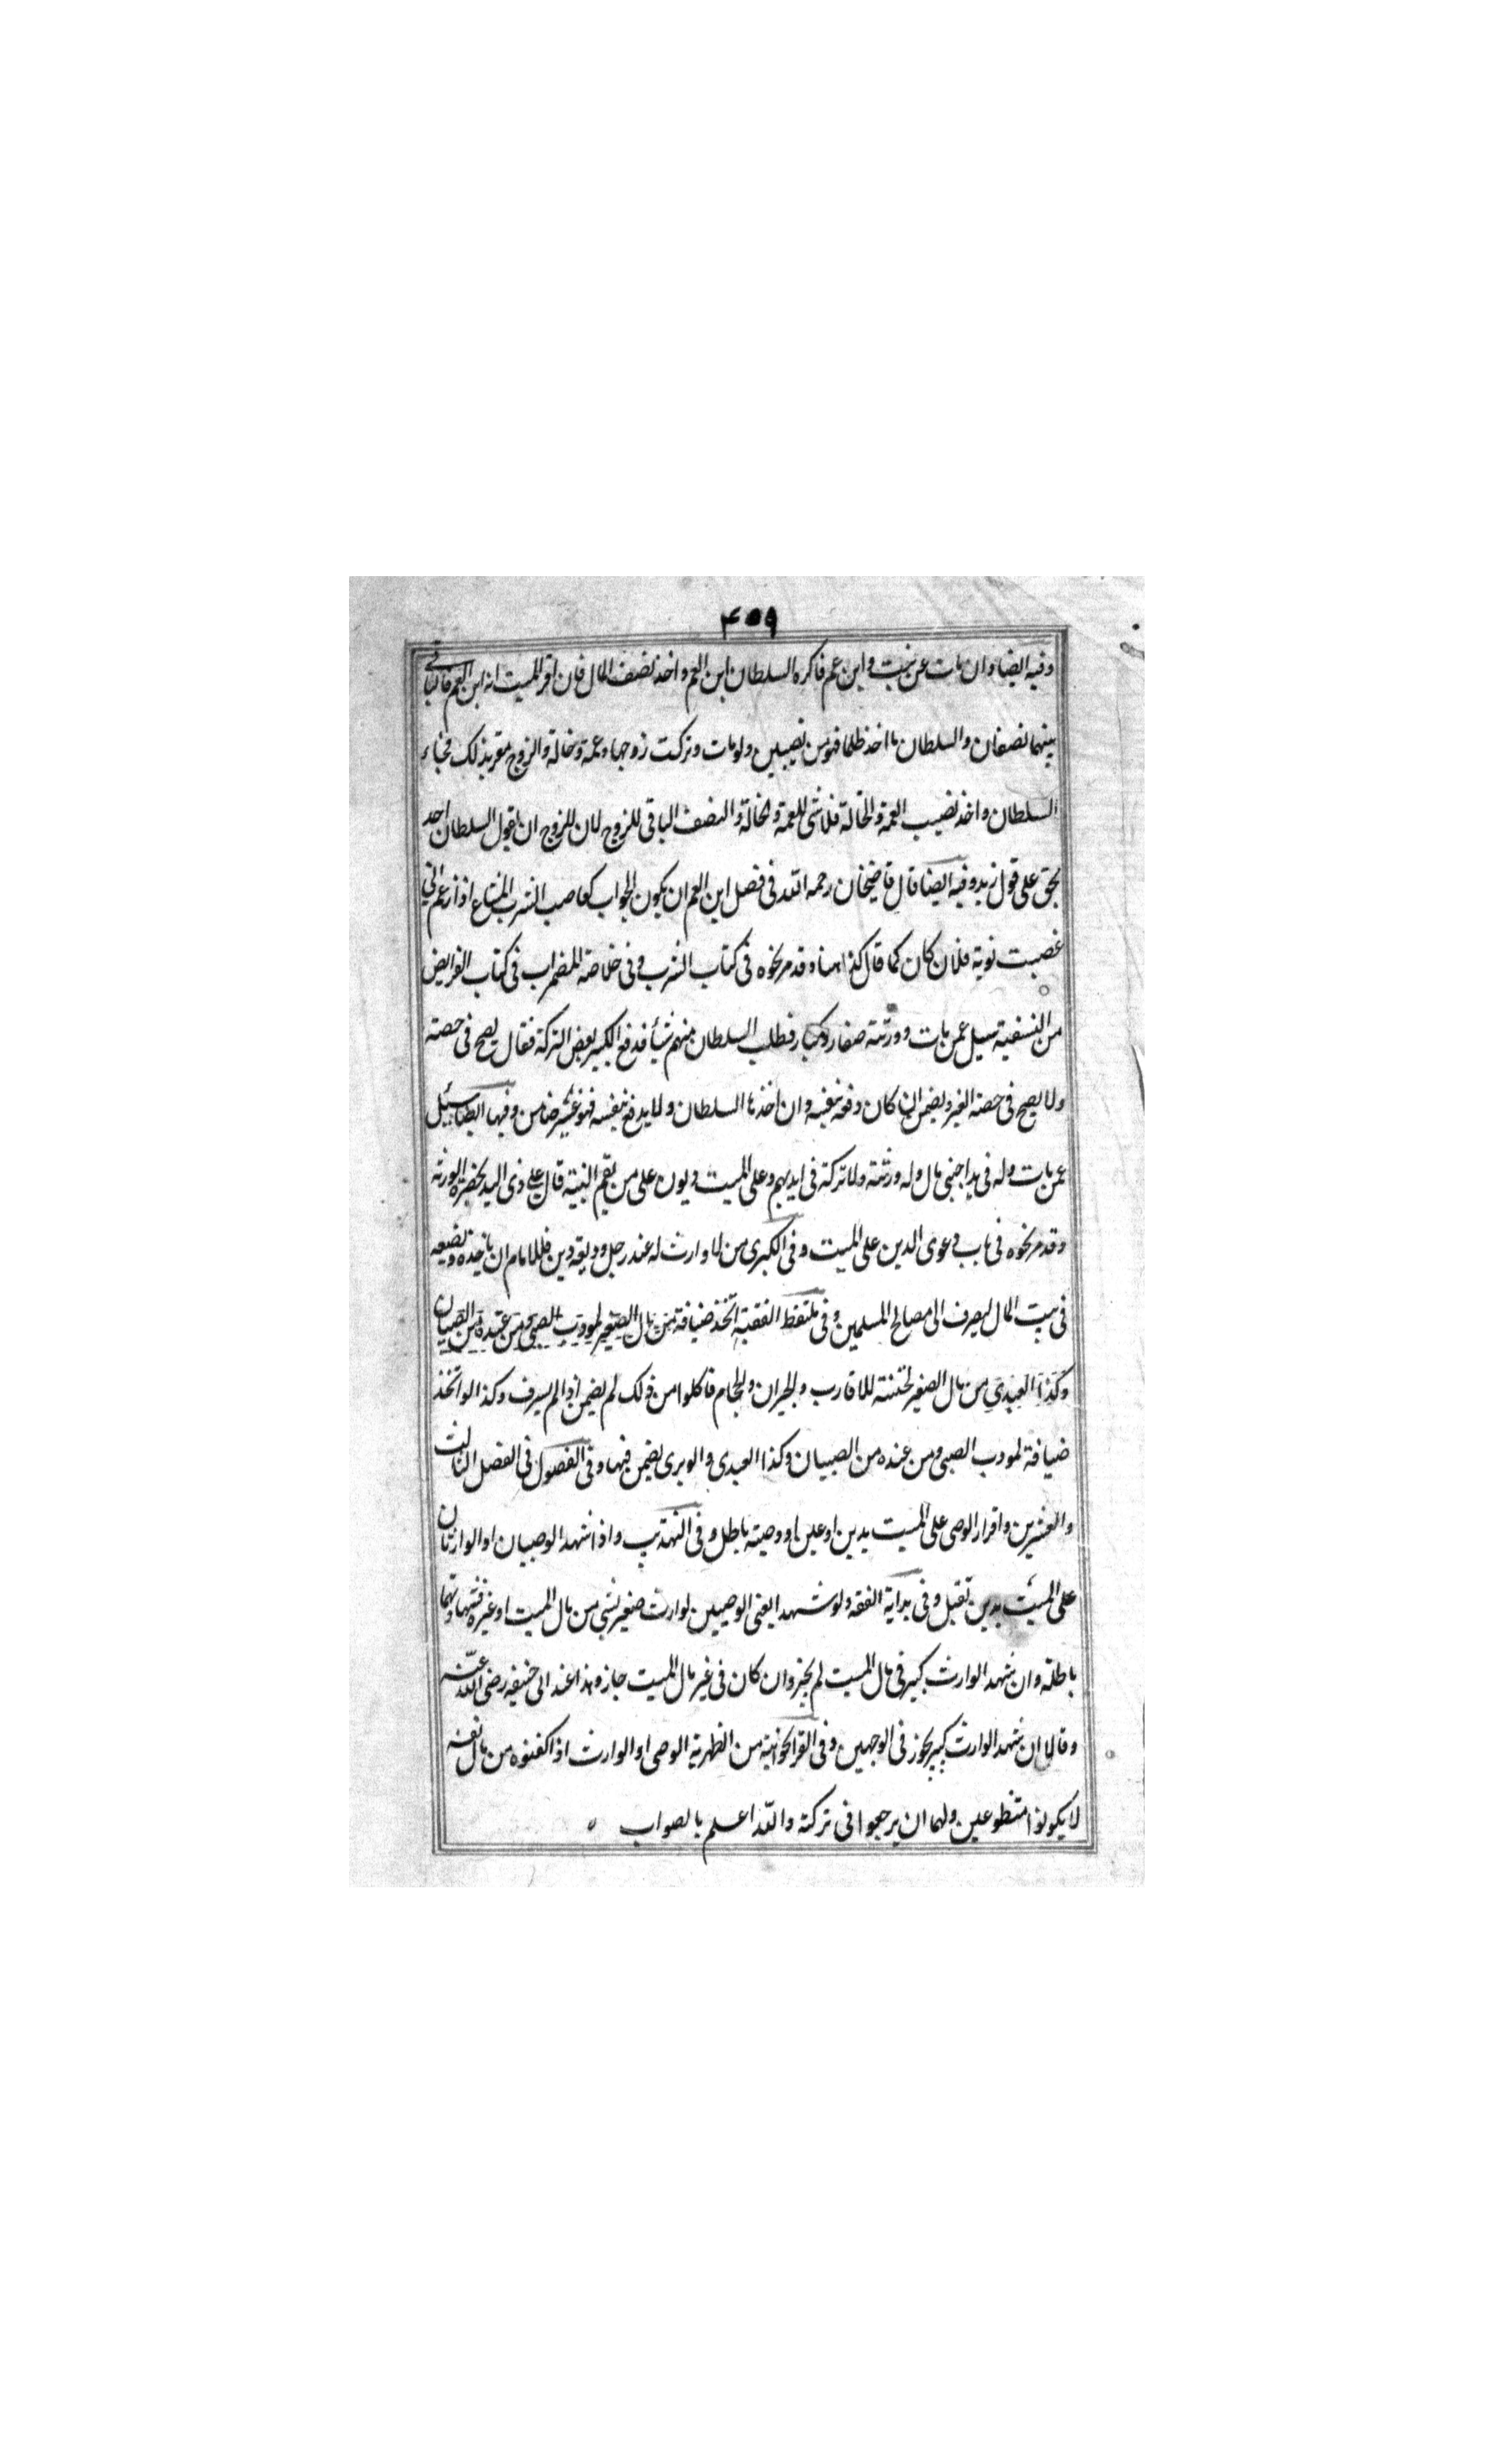 ۴۵۹
وفيه ايضا وان مات عن بنت وابن عم فاكره السلطان ابن العم واخذ نصف المال فان اقر الميت انه ابن العم فالباقي
بينهما نصفان والسلطان ما اخذ ظلما فهو من نصيبين ولو مات وتركت زوجها وعمة وخالة والزوج مقر بذلك فجاء
السلطان واخذ نصيب العمة والخالة فلا شئ للعمة والخالة والنصف الباقي للزوج لان للزوج ان يقول السلطان اخذ
بحق على قول زيد وفيه ايضا قال قاضيخان رحمه الله في فصل ابن العم ان يكون الجواب كغاصب الشرب المشاع اذا زعم اني
غصبت نوبة فلان كان كما قال كذا هنا وقد مر نحوه في كتاب الشرب وفي خلاصة المضمرات في كتاب الفرايض
من النسفية سيل عمن مات وورثته صغار وكبار فطلب السلطان منهم شيأ فدفع الكبير بعض التركة فقال يصح في حصته
ولا يصح في حصة الغير ويضمن ان كان دفعه بنفسه وان اخذها السلطان ولا يدفع بنفسه فهو غير ضامن وفيها ايضا سيل
عمن مات وله في يد اجنبي مال وله ورثة ولا تركة في ايديهم وعلى الميت ديون على من يقيم البينة قال على ذي اليد بحضرة الورثة
وقد مر نحوه في باب دعوى الدين على الميت وفي الكبرى من لا وارث له عند رجل وديعة دين فللامام ان ياخذه ويضعه
في بيت المال ليصرف الى مصالح المسلمين وفي ملتقط الفقه اتخذ ضيافة من مال الصغير لمودب الصبي من عنده من الصبيان
وكذا العيدي من مال الصغير لختنة للاقارب والجيران والحجام فاكلوا من ذلك لم يضمن اذا لم يسرف وكذا لو اتخذ
ضيافة لمودب الصبي ومن عنده من الصبيان وكذا العيدي والوبري يضمن فيها وفي الفصول في الفصل الثالث
والعشرين واقرار الوصي على الميت بدين او عين او وصية باطل وفي التهذيب واذا شهد الوصيان او الوارثان
على الميت بدين تقبل وفي بداية الفقه ولو شهد ايعني الوصيين لوارث صغير بشئ من مال الميت او غيره فشهادتهما
باطلة وان شهد الوارث كبير في مال الميت لم يجز وان كان في غير مال الميت جاز وهذا عند ابي حنيفه رضي الله عنه
وقالا ان شهد الوارث كبير يجوز في الوجهين وفي القراخوانية من الظهرية الوصي او الوارث اذا كفنوه من مال نفسه
لا يكونوا متطوعين ولهما ان يرجعوا في تركته والله اعلم بالصواب